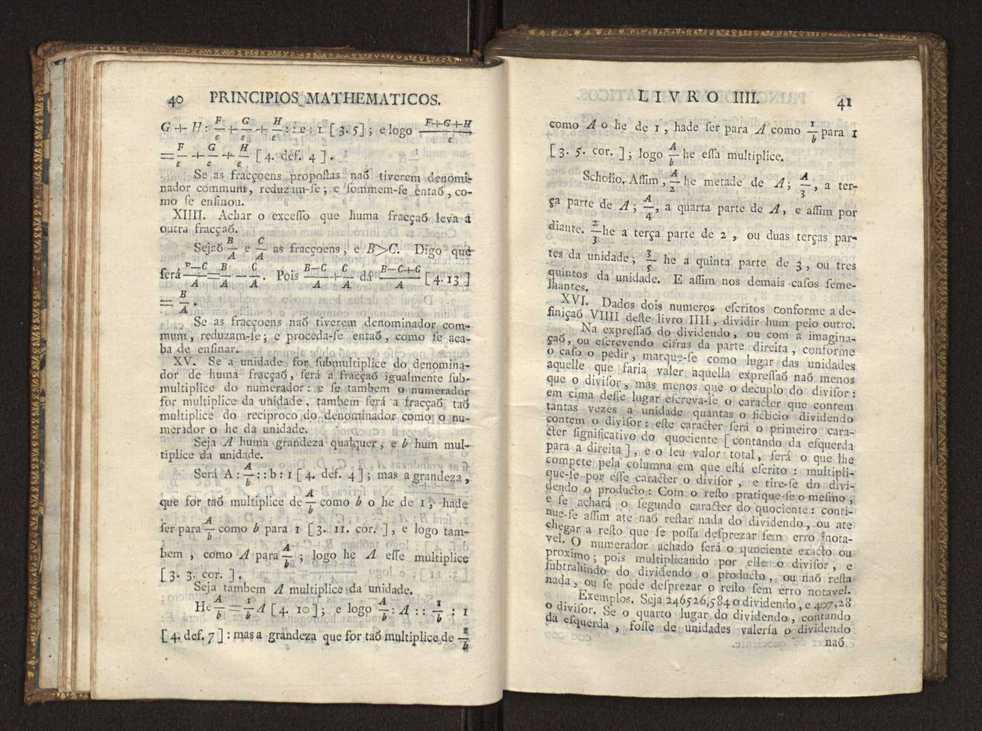 40 PRINCIPIOS MATHEMATICOS.
G + H : F/ε + G/ε + H/ε : : e : 1 [ 3. 5 ] ; e logo F+G+H/ε
= F/ε + G/ε + H/ε [ 4. def. 4 ] .
Se as fracçoens propoſtas naõ tiverem denomi-
nador commum, reduzam-ſe; e ſommem-ſe entaõ, co-
mo ſe enſinou.
XIIII. Achar o exceſſo que huma fracçaõ leva á
outra fracçaõ.
Sejaõ B/A e C/A as fracçoens, e B>C. Digo que
ſerá B—C/A = B/A — C/A. Pois B—C/A + C/A dá B—C+C/A [ 4. 13 ]
= B/A .
Se as fracçoens naõ tiverem denominador com-
mum, reduzam-ſe; e proceda-ſe entaõ, como ſe aca-
ba de enſinar.
XV. Se a unidade for ſubmultiplice do denomina-
dor de huma fracçaõ, ſerá a fracçaõ igualmente ſub-
multiplice do numerador: e ſe tambem o numerador
for multiplice da unidade, tambem ſerá a fracçaõ taõ
multiplice do reciproco do denominador como o nu-
merador o he da unidade.
Seja A huma grandeza qualquer, e b hum mul-
tiplice da unidade.
Será A : A/b : : b : 1 [ 4. def. 4 ] ; mas a grandeza,
que for taõ multiplice de A/b como b o he de 1, hade
ſer para A/b como b para 1 [ 3. 11. cor. ] , e logo tam-
bem , como A para A/b ; logo he A eſſe multiplice
[ 3. 3. cor. ] .
Seja tambem A multiplice da unidade.
He A/b = 1/b A [ 4. 10 ] ; e logo A/b : A : : 1/b : 1
[ 4. def. 7 ] : mas a grandeza que for taõ multiplice de 1/b
LIVRO IIII. 41
como A o he de 1 , hade ſer para A como 1/b para 1
[ 3. 5. cor. ] ; logo A/b he eſſa multiplice.
Scholio. Aſſim, A/2 he metade de A ; A/3 , a ter-
ça parte de A ; A/4 , a quarta parte de A, e aſſim por
diante. 2/3 he a terça parte de 2 , ou duas terças par-
tes da unidade; 3/5 he a quinta parte de 3, ou tres
quintos da unidade. E aſſim nos demais caſos ſeme-
lhantes.
XVI. Dados dois numeros eſcritos conforme a de-
finiçaõ VIIII deſte livro IIII, dividir hum pelo outro.
Na expreſſaõ do dividendo, ou com a imagina-
çaõ, ou eſcrevendo cifras da parte direita, conforme
o caſo o pedir, marque-ſe como lugar das unidades
aquelle que faria valer aquella expreſſaõ naõ menos
que o diviſor, mas menos que o decuplo do diviſor:
em cima deſſe lugar eſcreva-ſe o caracter que contem
tantas vezes a unidade quantas o ficticio dividendo
contem o diviſor: eſte caracter ſerá o primeiro cara-
cter ſignificativo do quociente [ contando da eſquerda
para a direita ] , e o ſeu valor total, ſerá o que lhe
compete pela columna em que eſtá eſcrito : multipli-
que-ſe por eſſe caracter o diviſor , e tire-ſe do divi-
dendo o producto: Com o reſto pratique-ſe o meſmo,
e ſe achará o ſegundo caracter do quociente: conti-
nue-ſe aſſim ate naõ reſtar nada do dividendo, ou ate
chegar a reſto que ſe poſſa deſprezar ſem erro nota-
vel. O numerador achado ſerá o quociente exacto ou
proximo; pois multiplicando por elle o diviſor, e
ſubtrahindo do dividendo o producto, ou naõ reſta
nada, ou ſe póde deſprezar o reſto ſem erro notavel.
Exemplos. Seja 246526,584 o dividendo, e 407,28
o diviſor. Se o quarto lugar do dividendo, contando
da eſquerda, foſſe de unidades valeria o dividendo
naõ